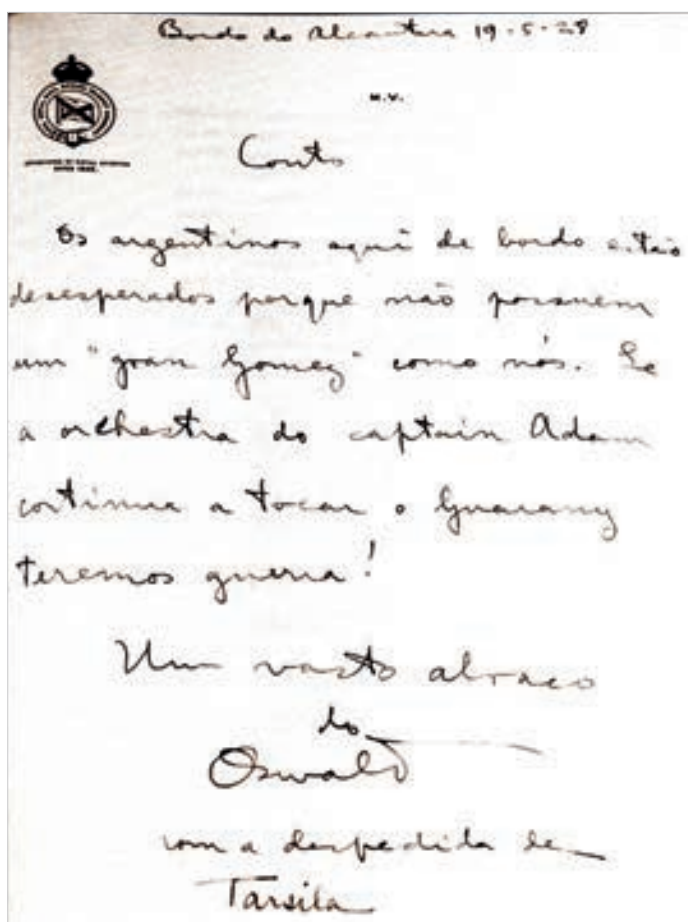 Bordo do Alcantara 19-5-28
M.V.
Couto
Os argentinos aqui de bordo estão
desesperados porque não possuem
um "gran Gomez" como nós. Se
a orchestra do captain Adam
continua a tocar o Guarany
teremos guerra!
Um vasto abraço
do
Oswald
com a despedida de
Tarsila